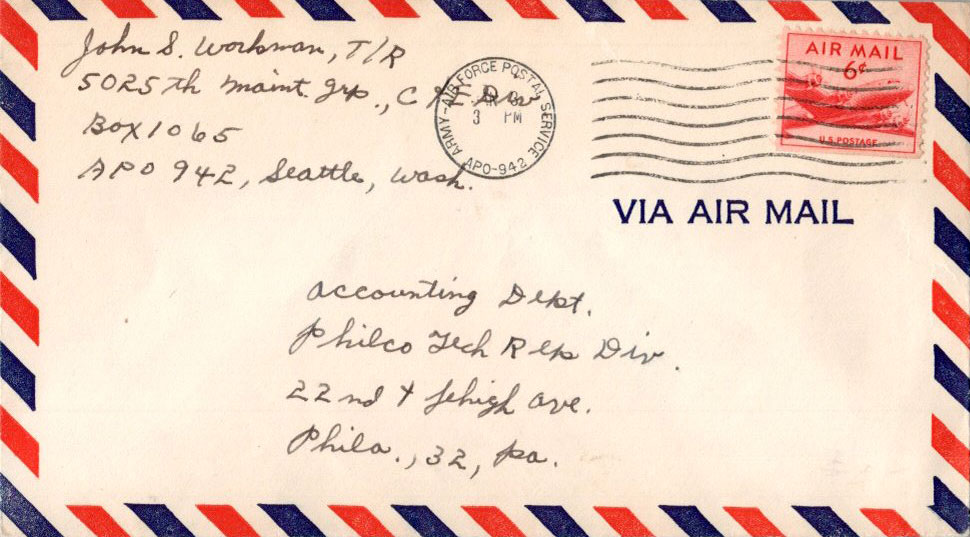 John S. Workman, T/R
5025th Maint. Grp., C
Box 1065
APO 942, Seattle, Wash.
ARMY-AIR FORCE POSTAL SERVICE
3 PM
APO-942
AIR MAIL
6¢
U.S. POSTAGE
VIA AIR MAIL
Accounting Dept.
Philco Tech Rep Div.
22nd & Lehigh Ave.
Phila., 32, Pa.